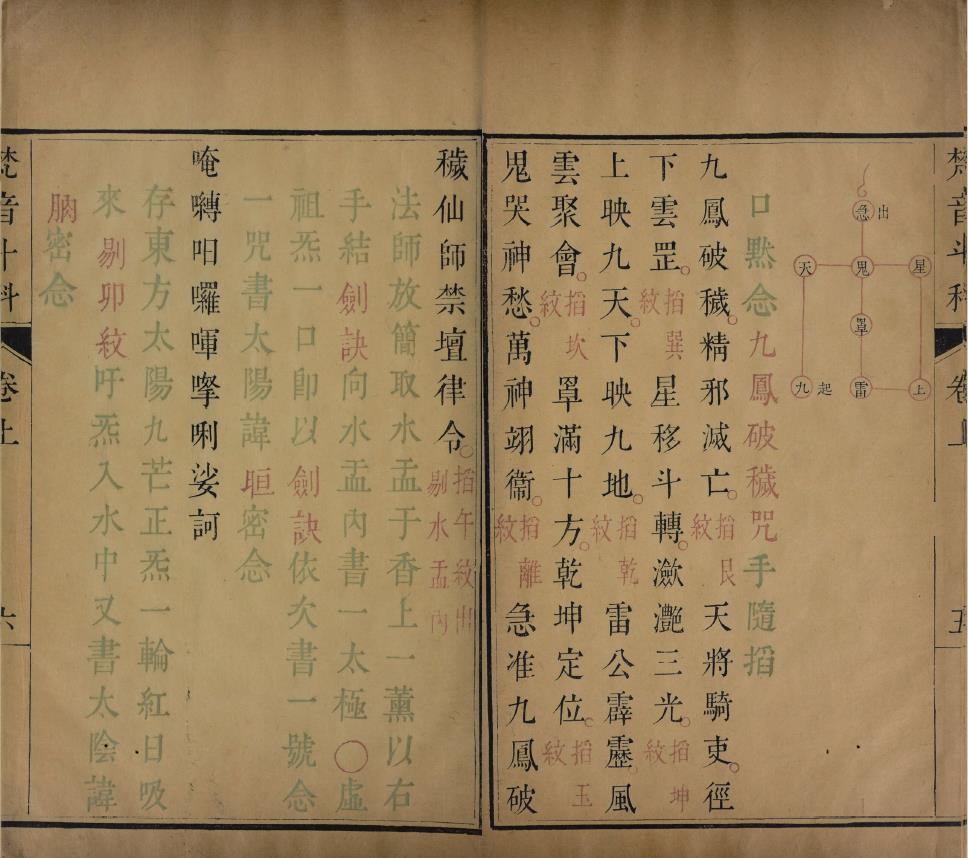 梵音斗科
卷上
五
急 出
天 鬼 星
罩
九 起 雷 上
口默念九鳳破穢咒手隨搯
九鳳破穢。精邪滅亡。搯艮紋 天將騎吏。徑
下雲罡。搯巽紋 星移斗轉。瀲灔三光。搯坤紋
上映九天。下映九地。搯乾紋 雷公霹靂。風
雲聚會。搯坎紋 罩滿十方。乾坤定位。搯玉紋
鬼哭神愁。萬神翊衞。搯離紋 急准九鳳破
穢仙師禁壇律令。搯午紋出剔水盂內
法師放簡取水盂于香上一薰以右
手結劍訣向水盂內書一太極〇虛
祖炁一口卽以劍訣依次書一號念
一咒書太陽諱晅密念
唵囀呬囉喗孯唎娑訶
存東方太陽九芒正炁一輪紅日吸
來剔卯紋吁炁入水中又書太陰諱
朒密念
梵音斗科
卷上
六